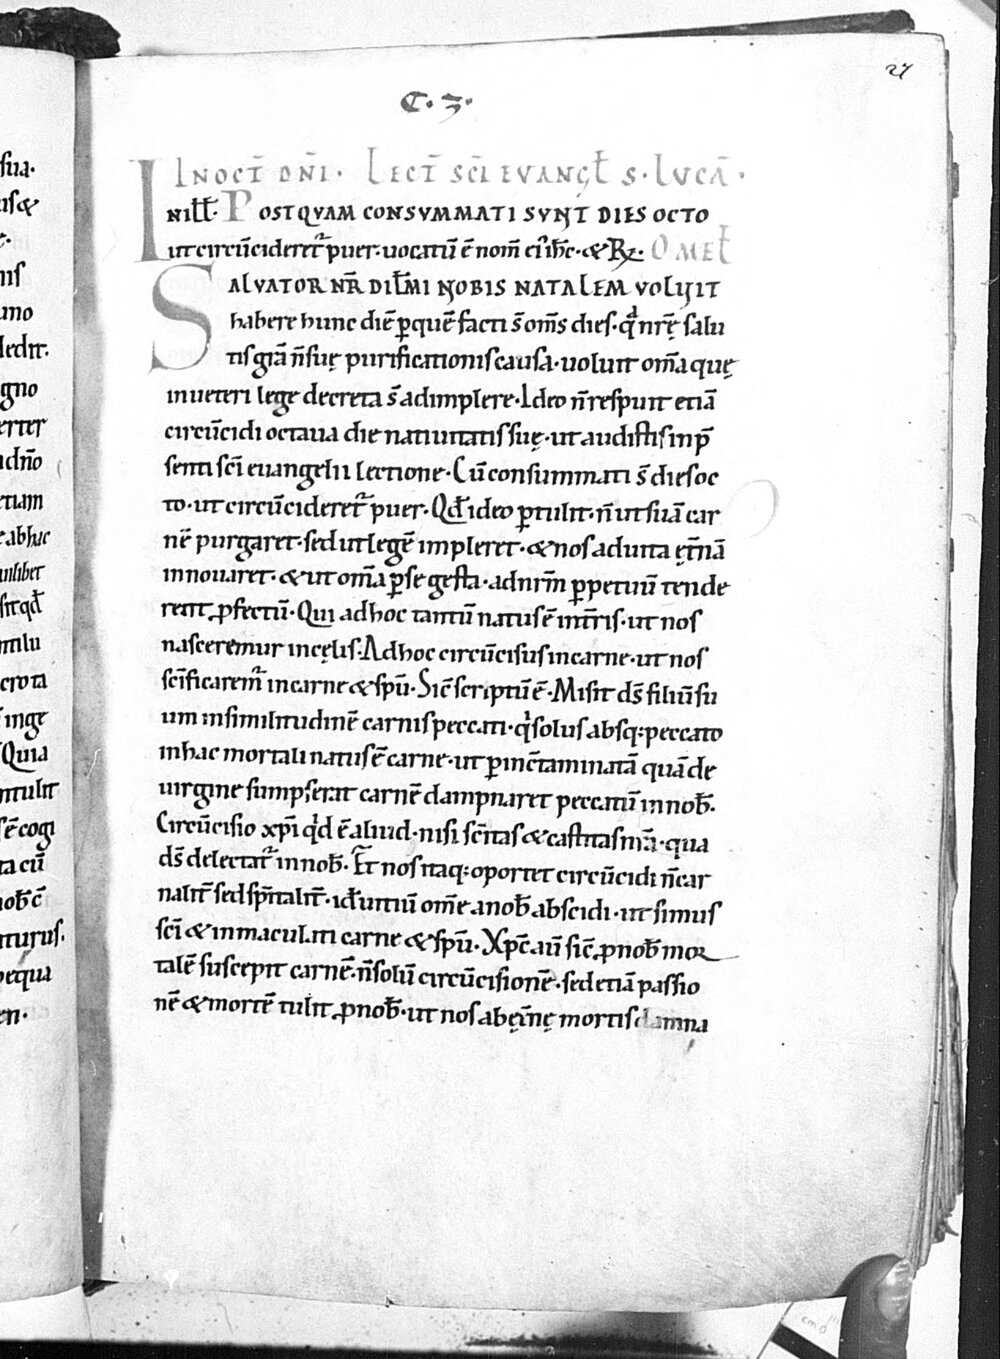 27
C. 3.
IN OCT̄ DN̄I. LECT̄ SC̄I EVANGL̄ S. LVCĀ.
IN ILL̄. POSTQVAM CONSVMMATI SVNT DIES OCTO
ut circūcideret᷑ puer. uocatū ē nom̄ ei' ih̄c. & R̷. OMEL̄
SALVATOR NR̄ DIL̄MI NOBIS NATALEM VOLVIT
habere hunc diē ꝑ quē facti s̄ om̄s dies. qd̓ nr̄ę salu
tis gr̄a n̄ suę purificationis causa. uoluit om̄a quę
in ueteri lege decreta s̄ adimplere. Ideo n̄ respuit etiā
circūcidi octaua die natiuitatis suę. ut audistis in p̄
senti sc̄i euangelii lectione. Cū consummati s̄ dies oc
to. ut circūcideret᷑ puer. Qd̄ ideo ꝑtulit. n̄ ut suā car
nē purgaret. sed ut legē impleret. & nos ad uitā ęt̄nā
innouaret. & ut om̄a ꝑ se gesta. ad nr̄m ꝑpetuū tende
rent ꝓfectū. Qui ad hoc tantū natus ē in tr̄is. ut nos
nasceremur in cęlis. Ad hoc circūcisus in carne. ut nos
sc̄ificarem᷑ in carne & sp̄u. Sic̄ scriptū ē. Misit ds̄ filiū su
um in similitudinē carnis peccati. q̓ solus absq; peccato
in hac mortali natus ē carne. ut ꝑ inc̄taminatā quā de
uirgine sumpserat carnē dampnaret peccatū in nob̄.
Circūcisio xp̄i qd̓ ē aliud. nisi sc̄itas & castitas nr̄a. qua
ds̄ delectat᷑ in nob̄. Et nos itaq; oportet circūcidi n̄ car
nalit̄ sed sp̄italit̄. id̄ uitiū om̄e a nob̄ abscidi. ut simus
sc̄i & inmaculati carne & sp̄u. Xp̄c aū sic̄ ꝓ nob̄ mor
talē suscepit carnē. n̄ solū circūcisionē. sed etiā passio
nē & mortē tulit ꝓ nob̄. ut nos ab ęt̄nę mortis damna